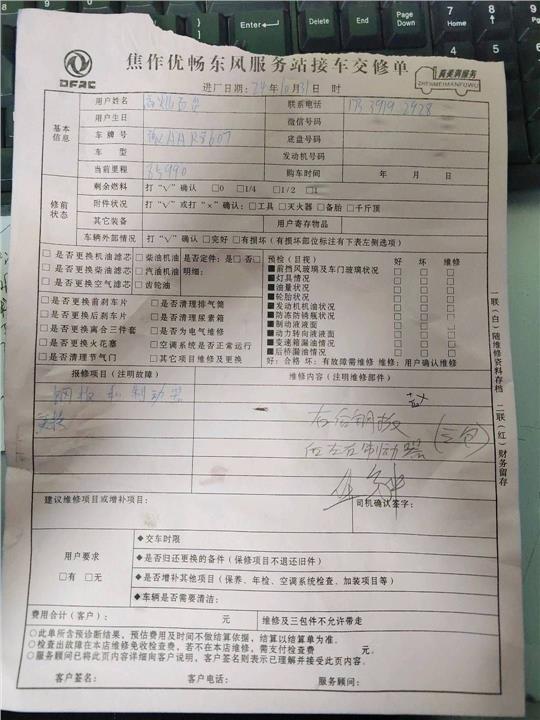 Enter
End
Page Down
Home
DFAC
焦作优畅东风服务站接车交修单
真美满服务
ZHENMEIMANFUWU
进厂日期：24年10月31日 时
基本信息
用户姓名
联系电话
用户生日
微信号码
车牌号
底盘号码
车型
发动机号码
当前里程 35990
购车时间 年 月 日
修前状态
剩余燃料 打"√"确认 □0 □1/4 □1/2 □1
附件状况 打"√"或打"×"确认：□工具 □灭火器 □备胎 □千斤顶
其它装备 用户寄存物品
车辆外部情况 打"√"确认 □完好 □有损坏（有损坏部位标注有下表左侧选项）
□是否更换机油滤芯 □柴油机油 是否定件：是□ 否□
□是否更换柴油滤芯 □汽油机油 明细：
□是否更换空气滤芯 □齿轮油
□是否更换前刹车片 □是否清理排气筒
□是否更换后刹车片 □是否清理尿素箱
□是否更换离合三件套 □是否为电气维修
□是否更换火花塞 □空调系统是否正常运行
□是否清理节气门 □其它项目维修及更换
预检（目视） 好 坏 维修
■前挡风玻璃及车门玻璃状况 □ □ □
■灯具情况 □ □ □
■油量状况 □ □ □
■轮胎状况 □ □ □
■发动机机油状况 □ □ □
■防冻防锈瓶状况 □ □ □
■制动液液面 □ □ □
■动力转向液液面 □ □ □
■变速箱漏油情况 □ □ □
■后桥漏油情况 □ □ □
好：合格 坏：有故障需维修 维修：用户确认维修
报修项目（注明故障） 维修内容（注明维修部件）
钢板和制动器
更换
右后钢板
(三包)
司机确认签字：
建议维修项目或增补项目：
用户要求
□有 □无
◆交车时限
◆是否归还更换的备件（保修项目不退还旧件）
◆是否增补其他项目（保养、年检、空调系统检查、加装项目等）
◆车辆是否需要清洁：
费用合计（客户）： 元 维修及三包件不允许带走
○此单所含预诊断结果，预估费用及时间不做结算依据，结算以结算单为准。
○检查出故障在本店维修免收检查费，若不在本店维修，需支付检查费 元。
○服务顾问已将此页内容详细向客户说明，客户签名则表示已理解并接受此页内容。
客户签名： 客户电话： 服务顾问：
一联（白）随维修资料存档 二联（红）财务留存